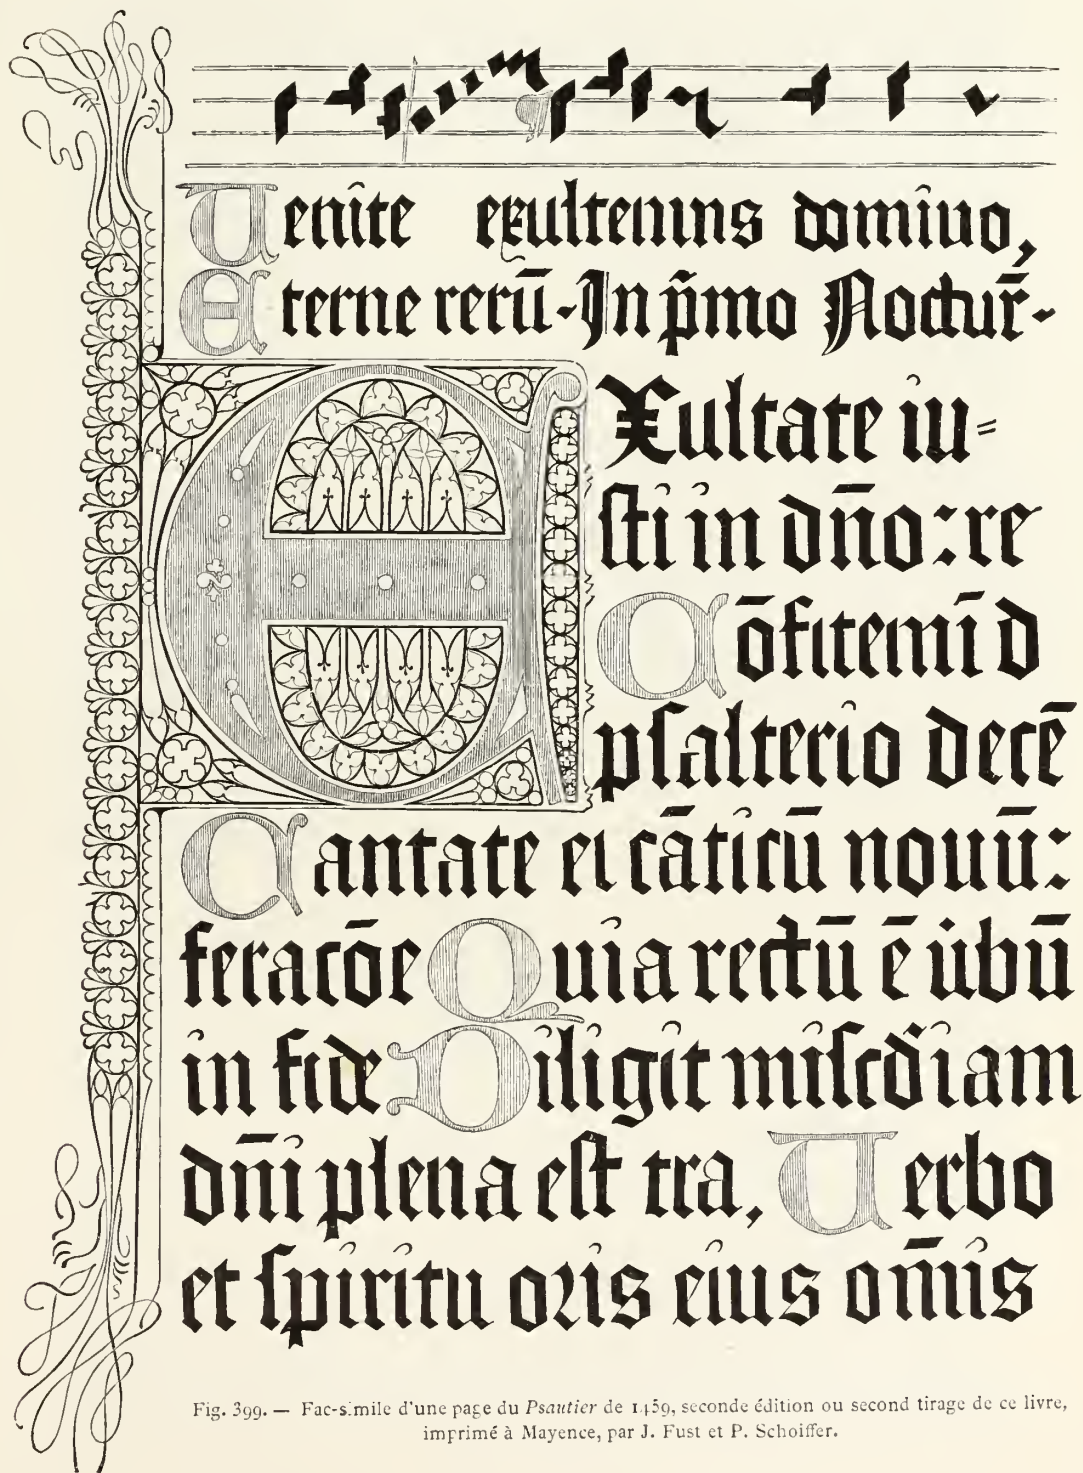 Uenite exultemus domino,
Eterne rerū. In p̄mo Nocturī.
EXultate iu=
sti in dn̄o: re
Cōfitemī d
psalterio decē
Cantate ei cāticū nouū:
feracōe Quia rectū ē ūbū
in fide Diligit misc̄diam
dn̄i plena est tra, Uerbo
et spiritu oris eius om̄is
Fig. 399. — Fac-simile d'une page du Psautier de 1459, seconde édition ou second tirage de ce livre,
imprimé à Mayence, par J. Fust et P. Schoiffer.